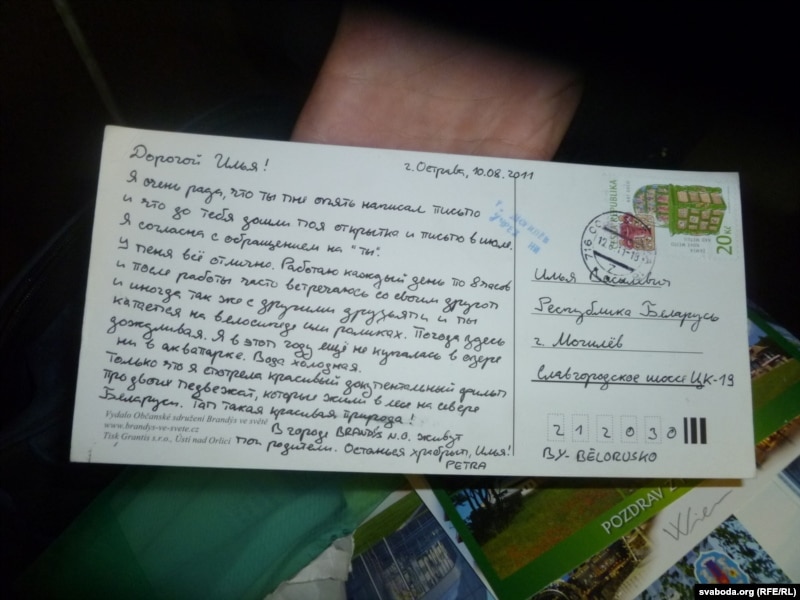 Дорогой Илья!
г. Острава, 10.08.2011
Я очень рада, что ты мне опять написал письмо
и что до тебя дошли моя открытка и письмо в июле.
Я согласна с обращением на "ты".
У меня всё отлично. Работаю каждый день по 8 часов
и после работы часто встречаюсь со своим другом
и иногда так же с другими друзьями и мы
катаемся на велосипеде или роликах. Погода здесь
дождливая. Я в этом году ещё не купалась в озере
ни в аквапарке. Вода холодная.
Только что я смотрела красивый документальный фильм
про двоих медвежат, которые жили в лесе на севере
Беларуси. Там такая красивая природа!
В городе BRANDÝS N.O. живут
мои родители. Оставайся храбрым, Илья!
PETRA
Vydalo Občanské sdružení Brandýs ve světě
www.brandys-ve-svete.cz
Tisk Grantis s.r.o., Ústí nad Orlicí
REPUBLIKA
20 Kč
Илья Васильевич
Республика Беларусь
г. Могилёв
Славгородское шоссе ЦК-19
212030
BY- BĚLORUSKO
POZDRAV Z
Wien
svaboda.org (RFE/RL)